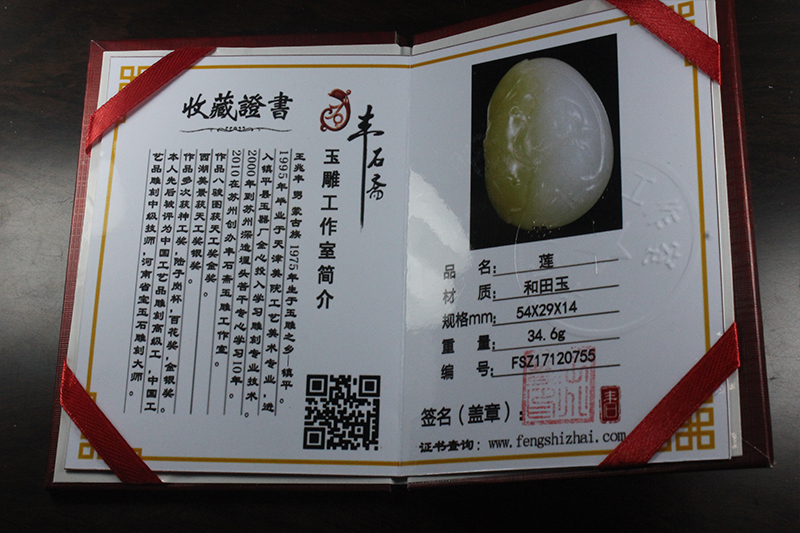 收藏證書
丰石斋
玉雕工作室简介
王兆丰 男 蒙古族 1975年生于玉雕之乡—镇平。
1995年 毕业于天津美院工艺美术专业，进
入镇平县玉器厂全心投入学习雕刻专业技术。
2000年到苏州深造埋头苦干专心学习10年。
2010在苏州创办丰石斋玉雕工作室。
作品八骏图获天工奖金奖。
西湖美景获天工奖银奖。
作品多次获神工奖，陆子岗杯，百花奖，金银奖。
本人先后被评为中国工艺品雕刻高级工，中国工
艺品雕刻中级技师，河南省宝玉石雕刻大师。
品 名：莲
材 质：和田玉
规格mm：54X29X14
重 量：34.6g
编 号：FSZ17120755
签名（盖章）：
证书查询：www.fengshizhai.com